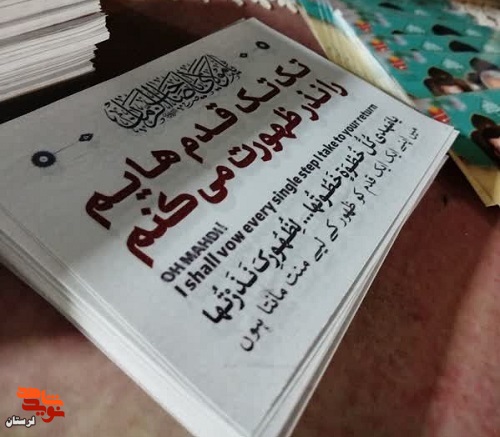 تک تک قدم هایم
را نذر ظهورت می کنم
OH MAHDI!
I shall vow every single step I take to your return
یا مَهدی کُلُّ خُطْوَةٍ خَطَوتُها.. لِظُهُورِکَ نَذَرْتُها
میں اپنے ایک ایک قدم کو ظہور کے لیے منت مانتا ہوں
نوید شاهد
لرستان